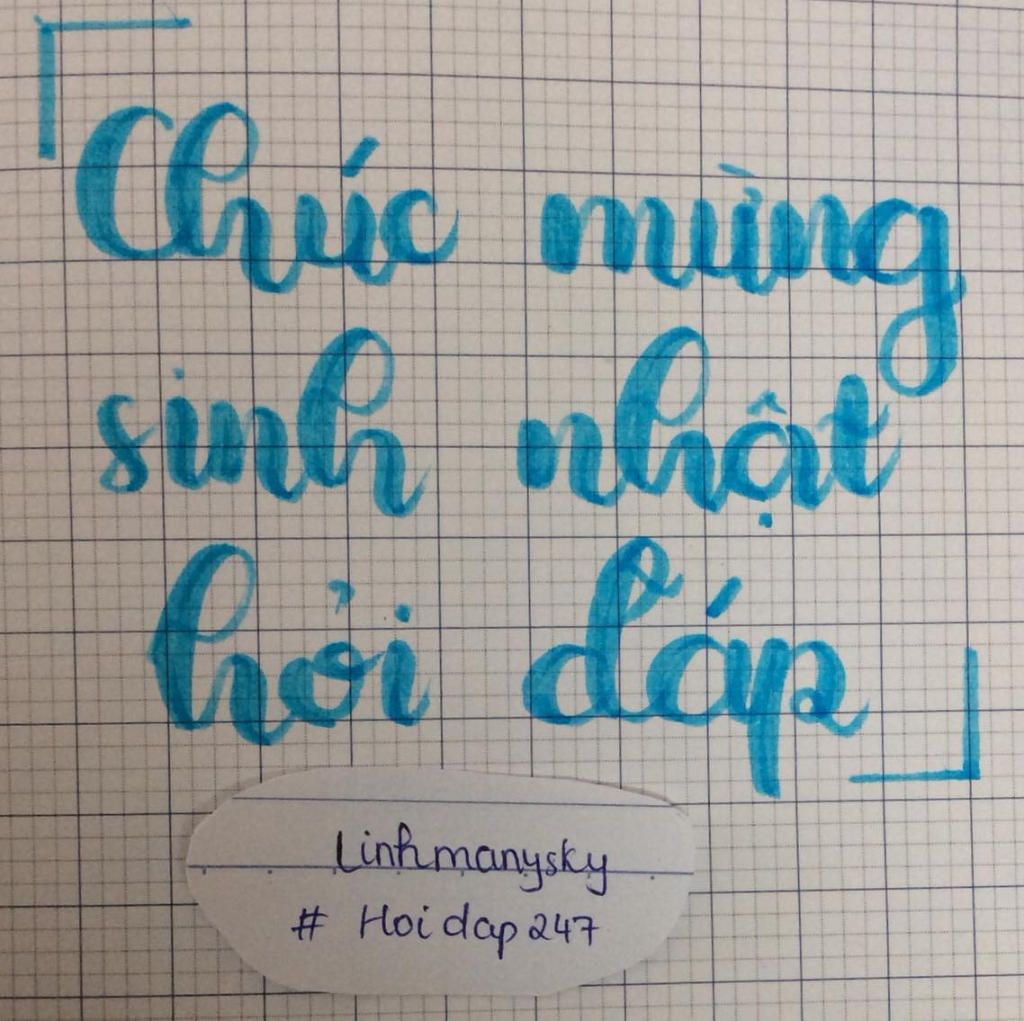 Chúc mừng
sinh nhật
hỏi đáp
Linhmanysky
# Hoidap247